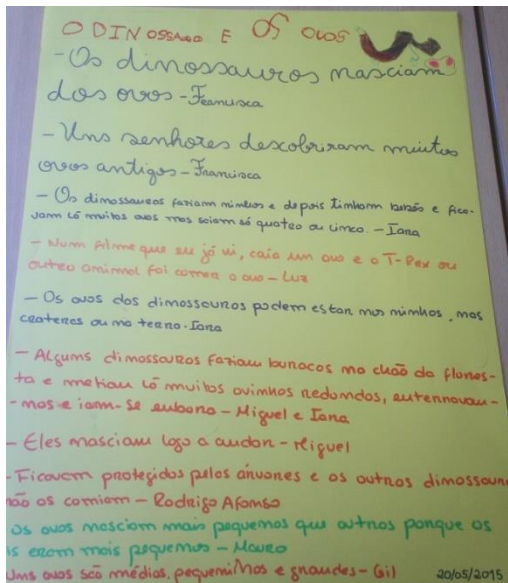 O DINOSSAURO E OS OVOS
- Os dinossauros nasciam
dos ovos - Francisca
- Uns senhores descobriram muitos
ovos antigos - Francisca
- Os dinossauros faziam ninhos e depois tinham bebés e fica-
vam lá muitos ovos mas saiam só quatro ou cinco. - Iana
- Num filme que eu já vi, caio um ovo e o T-Rex ou
outro animal foi comer o ovo - Luz
- Os ovos dos dinossauros podem estar nos ninhos, nas
crateras ou na terra - Iana
- Alguns dinossauros faziam buracos no chão da flores-
ta e metiam lá muitos ovinhos redondos, enterravam-
-nos e iam-se embora - Miguel e Iana
- Eles nasciam logo a andar - Miguel
- Ficavam protegidos pelas árvores e os outros dinossauros
não os comiam - Rodrigo Afonso
Os ovos nasciam mais pequenos que outros porque os
is eram mais pequenos - Mauro
Uns ovos são médios, pequeninos e grandes - Gil
20/05/2015